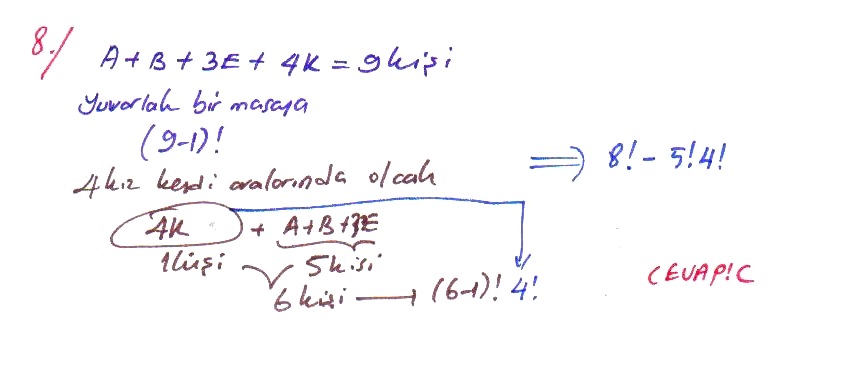 8./ A + B + 3E + 4K = 9 kişi
Yuvarlak bir masaya
(9-1)!
4 kız kendi aralarında olcak
⟹ 8! - 5!4!
4K + A+B+3E
1 kişi 5 kişi
6 kişi → (6-1)! 4!
CEVAP!C